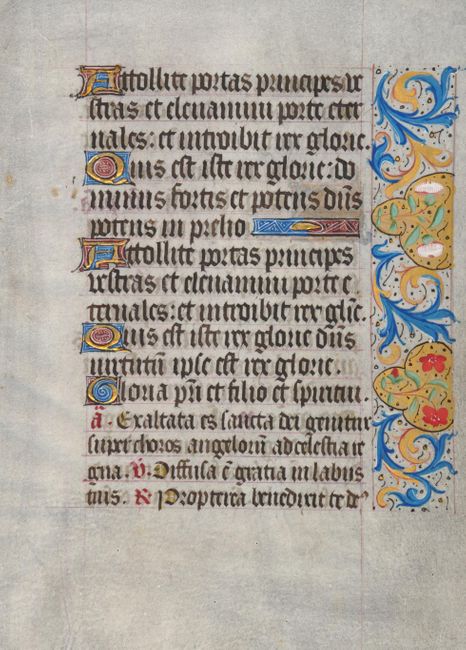 Attollite portas principes ve
stras et elevamini porte eter
nales: et introibit rex glorie.
Quis est iste rex glorie: do
minus fortis et potens dn̄s
potens in prelio
Attollite portas principes
vestras et elevamini porte e
ternales: et introibit rex glīe.
Quis est iste rex glorie dn̄s
virtutum ipse est rex glorie.
Gloria prī et filio et spiritui.
ā. Exaltata es sancta dei genitrix
super choros angelorū ad celestia re
gna. V̄. Diffusa ē gratia in labiis
tuis. R̄ Propterea benedixit te de⁹